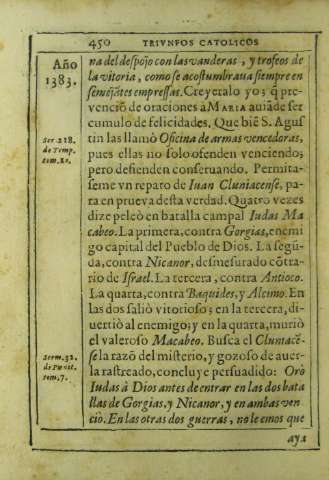 450 TRIVNFOS CATOLICOS
Año
1383.
na del despojo con las vanderas, y trofeos de
la vitoria, como se acostumbraua siempre en
semejãtes empressas. Creyeralo yo; q̃ pre-
venciõ de oraciones à MARIA auiã de ser
cumulo de felicidades. Que biẽ S. Agus-
tin las llamò Oficina de armas vencedoras,
pues ellas no solo ofenden venciendo;
pero defienden conseruando. Permita-
seme vn reparo de Iuan Cluniacense, pa-
ra en prueva desta verdad. Quatro vezes
dize peleò en batalla campal Iudas Ma
cabeo. La primera, contra Gorgias, enemi
go capital del Pueblo de Dios. La segũ-
da, contra Nicanor, desmesurado cõtra-
rio de Israel. La tercera, contra Antioco.
La quarta, contra Baquides, y Alcimo. En
las dos saliò vitorioso; en la tercera, di-
uertiò al enemigo; y en la quarta, muriò
el valeroso Macabeo. Busca el Cluniacẽ-
se la razõ del misterio, y gozoso de auer-
la rastreado, concluye persuadido: Orò
Iudas à Dios antes de entrar en las dos bata
llas de Gorgias, y Nicanor, y en ambas ven
ciò. En las otras dos guerras, no leemos que
aya
Ser. 218.
de Temp.
tom. 10.
Serm. 32.
tom. 7.